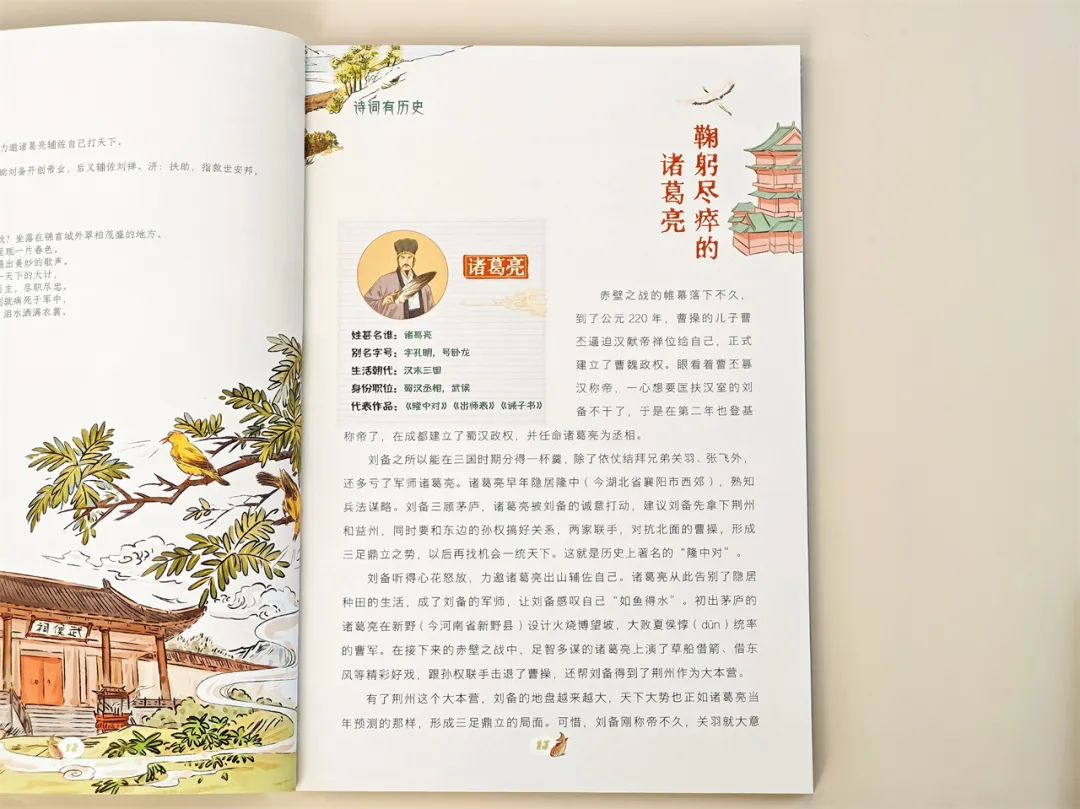 力邀诸葛亮辅佐自己打天下。
助刘备开创帝业，后又辅佐刘禅。济：扶助，指救世安邦。
戈？坐落在锦官城外翠柏茂盛的地方。
呈现一片春色。
唱出美妙的歌声。
一天下的大计，
后主，尽职尽忠。
利就病死于军中，
泪水洒满衣裳。
武侯祠
12
诗词有历史
鞠躬尽瘁的
诸葛亮
诸葛亮
姓甚名谁：诸葛亮
别名字号：字孔明，号卧龙
生活朝代：汉末三国
身份职位：蜀汉丞相，武侯
代表作品：《隆中对》《出师表》《诫子书》
赤壁之战的帷幕落下不久，
到了公元 220 年，曹操的儿子曹
丕逼迫汉献帝禅位给自己，正式
建立了曹魏政权。眼看着曹丕篡
汉称帝，一心想要匡扶汉室的刘
备不干了，于是在第二年也登基
称帝了，在成都建立了蜀汉政权，并任命诸葛亮为丞相。
刘备之所以能在三国时期分得一杯羹，除了依仗结拜兄弟关羽、张飞外，
还多亏了军师诸葛亮。诸葛亮早年隐居隆中（今湖北省襄阳市西郊），熟知
兵法谋略。刘备三顾茅庐，诸葛亮被刘备的诚意打动，建议刘备先拿下荆州
和益州，同时要和东边的孙权搞好关系，两家联手，对抗北面的曹操，形成
三足鼎立之势，以后再找机会一统天下。这就是历史上著名的“隆中对”。
刘备听得心花怒放，力邀诸葛亮出山辅佐自己。诸葛亮从此告别了隐居
种田的生活，成了刘备的军师，让刘备感叹自己“如鱼得水”。初出茅庐的
诸葛亮在新野（今河南省新野县）设计火烧博望坡，大败夏侯惇（dūn）统率
的曹军。在接下来的赤壁之战中，足智多谋的诸葛亮上演了草船借箭、借东
风等精彩好戏，跟孙权联手击退了曹操，还帮刘备得到了荆州作为大本营。
有了荆州这个大本营，刘备的地盘越来越大，天下大势也正如诸葛亮当
年预测的那样，形成三足鼎立的局面。可惜，刘备刚称帝不久，关羽就大意
13